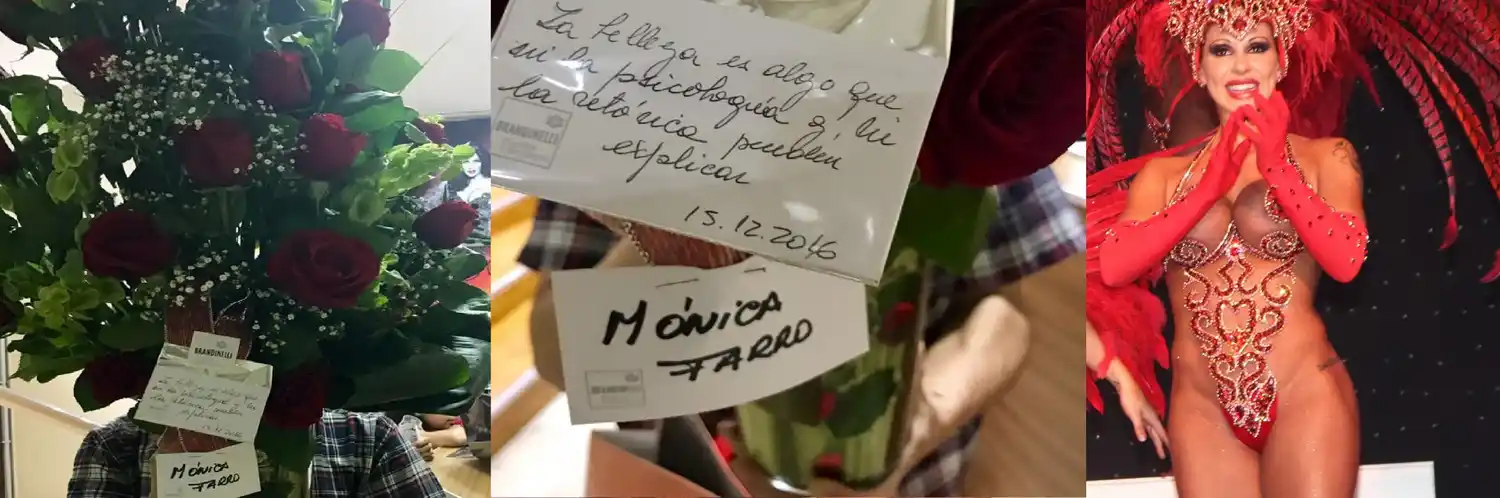 BRANDINELLI
MÓNICA
FARRO
La belleza es algo que
ni la psicología y ni
la retórica pueden
explicar
BRANDINELLI
15.12.2016
MÓNICA
FARRO
BRANDINELLI